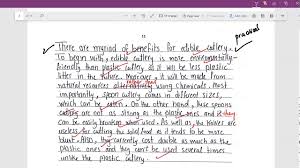 practical
There are myriad of benefits for edible cutlery.
To begin with, edible cutlery is more environmentally-
friendly than plastic cutlery as it will be less plastic
litter in the future. Moreover, it will be made from
natural resources alternatively using chemicals. Most
importantly, spoon cutlery comes in different sizes,
which can be eaten. On the other hand, these spoons
cutlery are not as strong as the plastic ones and
can be easily broken when used. As well as, the knives are
useless for cutting the solid food as it tends to be more
than. Also, they currently cost double as much as the
plastic ones and they can't be used several times
unlike the plastic cutlery.